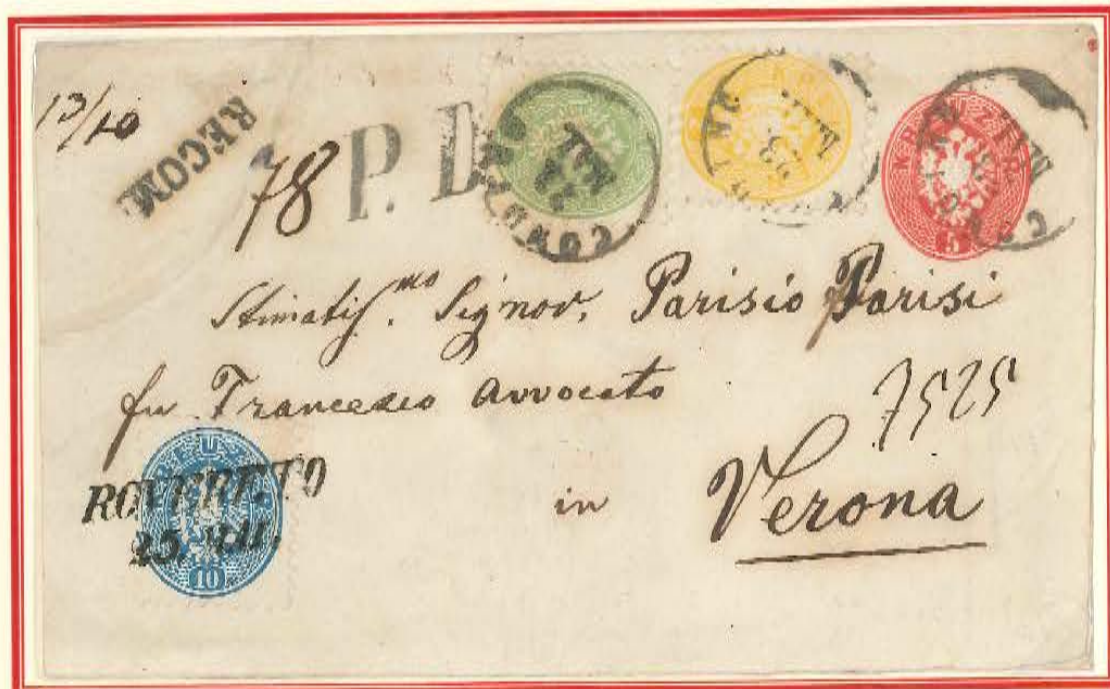 13/10
RECOM.
78
P. D
Stimatiss.mo Signor, Parisio Parisi
fu Francesco Avvocato
7525
ROVERETO
25. VII.
10
in
Verona
5